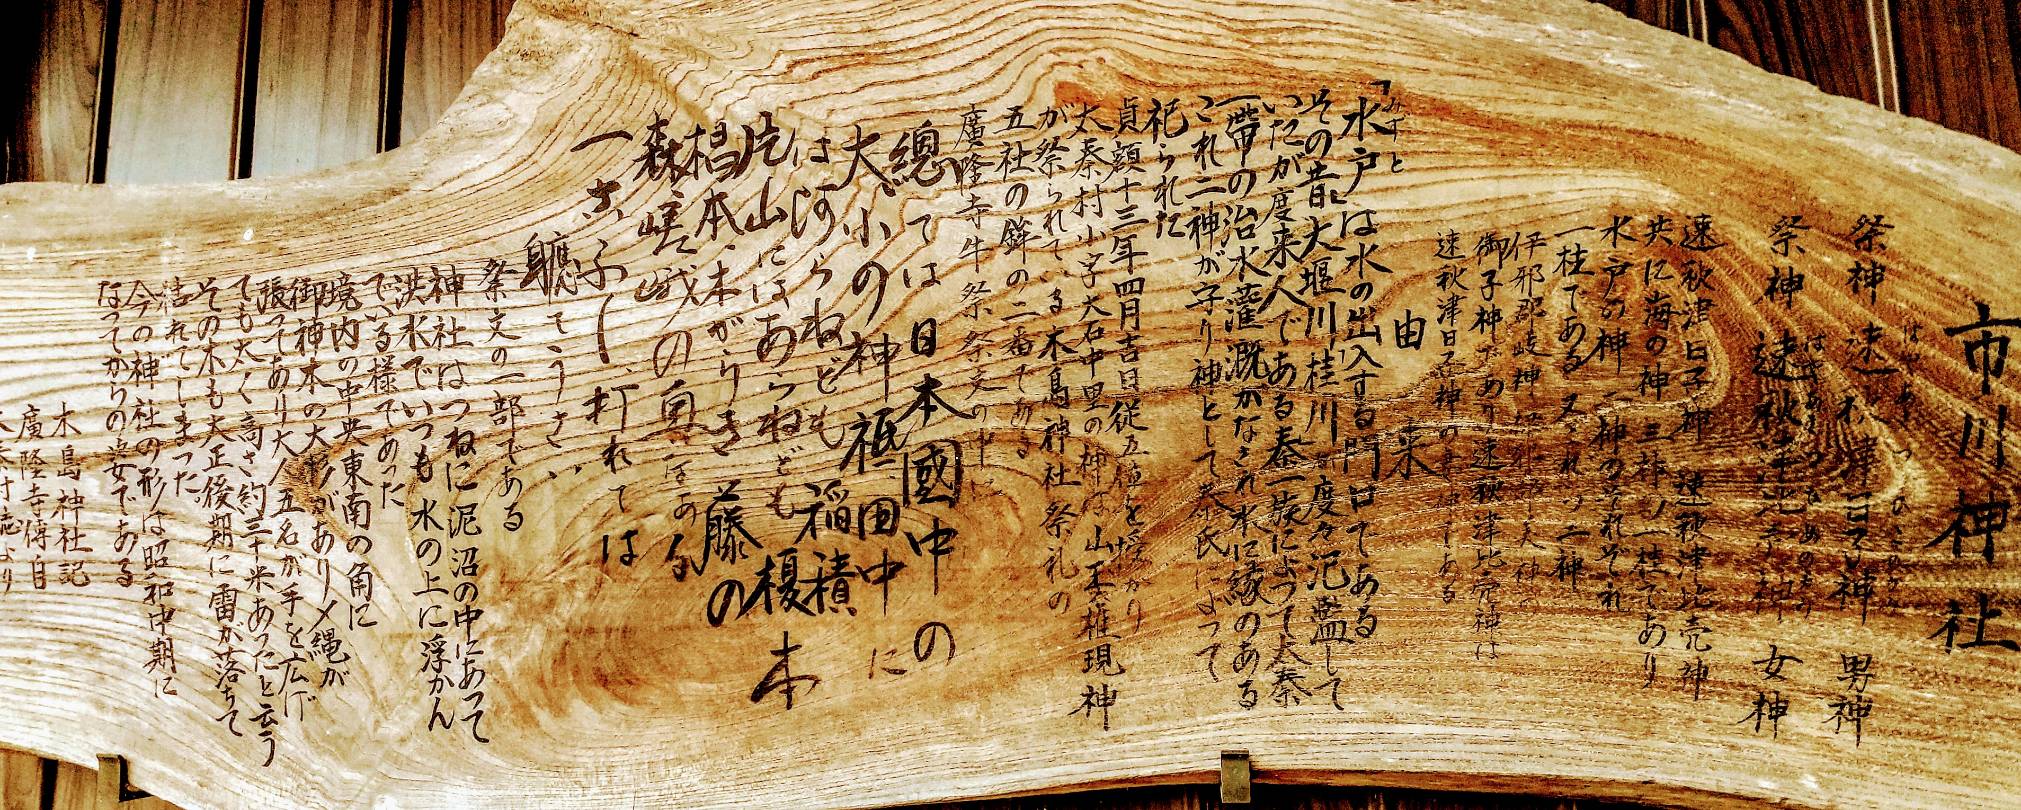 市川神社
はやあきつひこのかみ
祭神 速秋津日子神 男神
はやあきつひめのかみ
祭神 速秋津比売神 女神
速秋津日子神 速秋津比売神
共に海の神 三神の一柱であり
水戸の神 二神のそれぞれ
一柱である 又これの二神
伊邪那岐神 伊邪那美神の
御子神であり速秋津比売神は
速秋津日子神の妻神である
由来
みずと
「水戸は水の出入する門口てある
その昔大堰川桂川が度々氾濫して
いたが度来人である秦一族によって太秦
一帯の治水灌漑がなされ水に縁のある
これ二神が守り神として秦氏によって
祀られた
貞額十三年四月吉日従五位を授かり
太秦村小字大石中里の神は山王権現神
が祭られている木島神社祭礼の
五社の鉾の二番てある
廣隆寺牛祭祭文の中に
總ては日本國中の
大小の神祇田中に
は河らねども稲積
片山にはあらねども榎本
椙本、木がらりき藤の
森嵯峨の奥なる
一さ子し打れては
聽てうさい
祭文の一部である
神社はつねに泥沼の中にあって
洪水でいつも水の上に浮かん
でいる様てあった
境内の中央東南の角に
御神木の大杉があり〆縄が
張ってあり大人五名が手を広げ
ても太く高さ約三十米あったと云う
その木も大正後期に雷が落ちて
枯れてしまった。
今の神社の形は昭和中期に
なってからの姿である
木島神社記
廣隆寺傳自
太秦村誌より